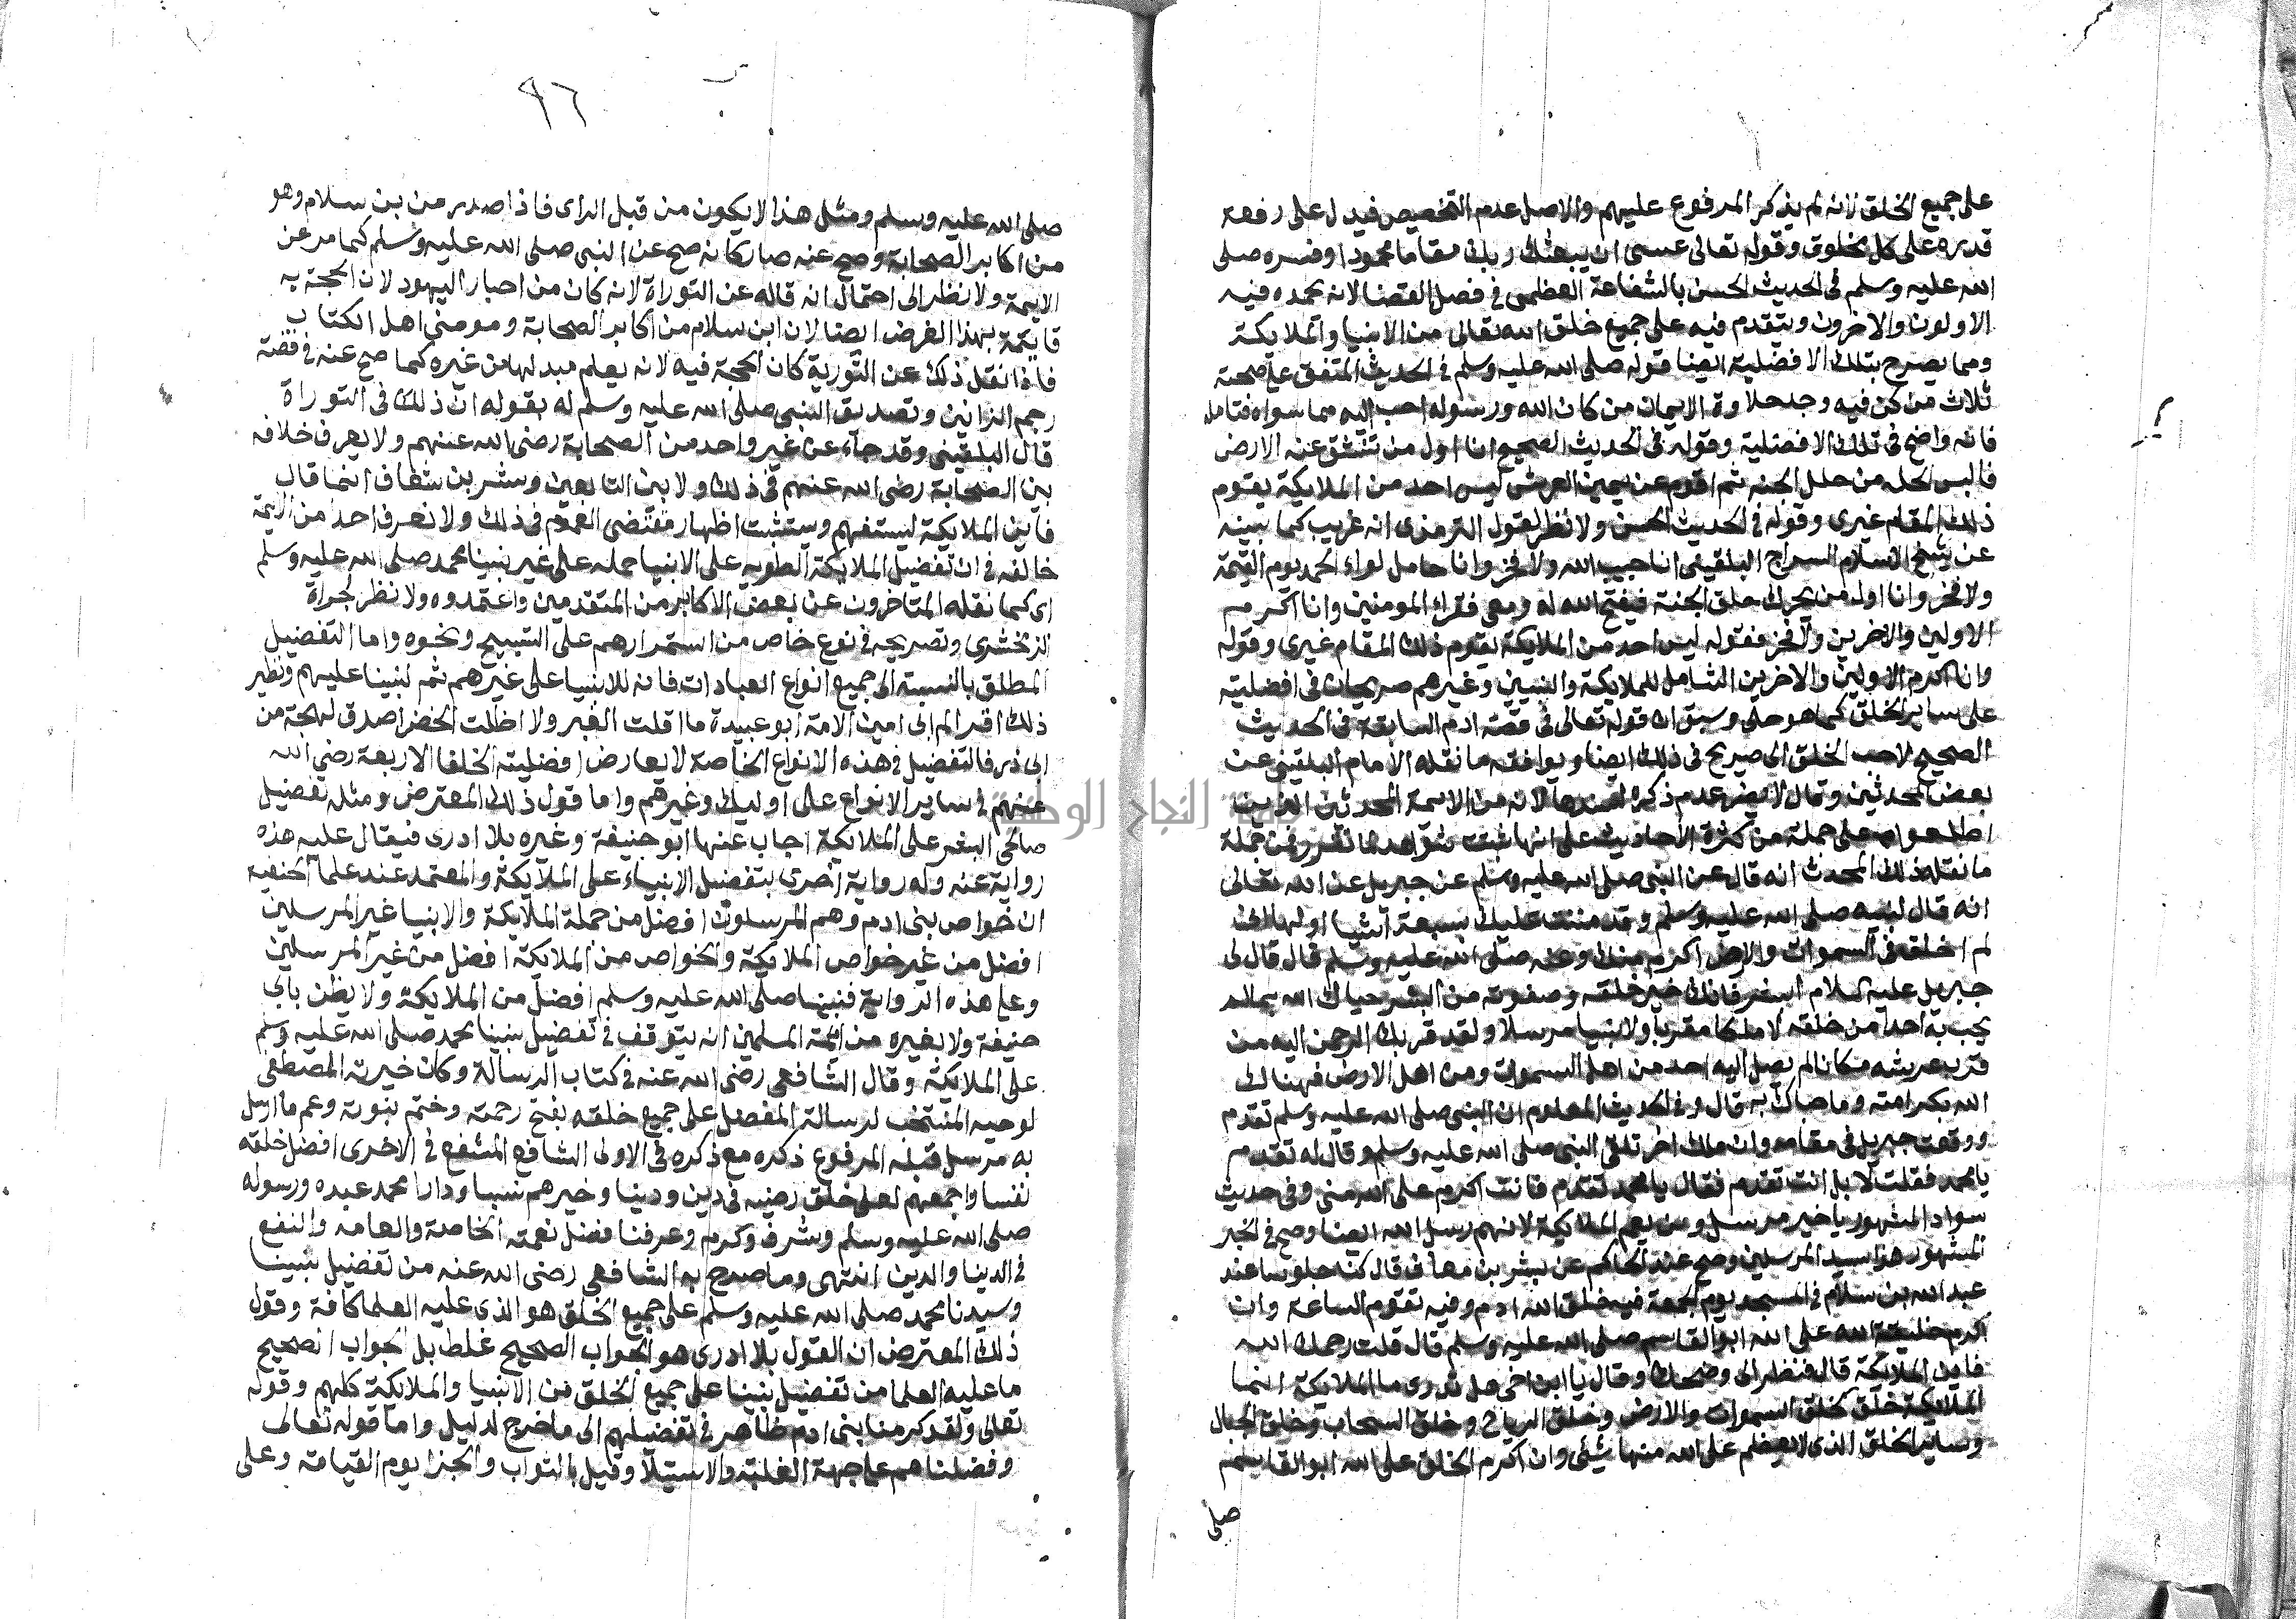 على جميع الخلق لانه لم يذكر المرفوع عليهم والاصل عدم التخصيص فيدل على رفعة
قدره على كل مخلوق وقوله تعالى عسى ان يبعثك ربك مقاما محمودا وفسره صلى
الله عليه وسلم فى الحديث الحسن بالشفاعة العظمى فى فصل القضا لانه يحمده فيه
الاولون والاخرون ويتقدم فيه على جميع خلق الله تعالى من الانبيا والملايكة
ومما يصرح بتلك الافضلية ايضا قوله صلى الله عليه وسلم فى الحديث المتفق على صحته
ثلاث من كن فيه وجد حلاوة الايمان من كان الله ورسوله احب اليه مما سواه فتامله
فانه واضح فى تلك الافضلية وقوله فى الحديث الصحيح انا اول من تنشق عنه الارض
فالبس الحلة من حلل الجنة ثم اقوم عن يمين العرش ليس احد من الملايكة يقوم
ذلك المقام غيرى وقوله فى الحديث الحسن ولا نظر لقول الترمذى انه غريب كما بينه
عن شيخ الاسلام السراج البلقينى انا حبيب الله ولا فخر وانا حامل لواء الحمد يوم القيمة
ولا فخر وانا اول من يحرك حلق الجنة فيفتح الله له ومعى فقراء المومنين وانا اكرم
الاولين والاخرين ولا فخر فقوله ليس احد من الملايكة يقوم ذلك المقام غيرى وقوله
وانا اكرم الاولين والاخرين الشامل للملايكة والنبيين وغيرهم صريحان فى افضليته
على ساير الخلق كما هو جلى وسبق ان قوله تعالى فى قصة ادم السابقة فى الحديث
الصحيح لاحب الخلق الى صريح فى ذلك ايضا ويوافقه ما نقله الامام البلقينى عن
بعض المحدثين وقال لا يضر عدم ذكره لسندها لانه من الايمة المحدثين الذين
اطلعوا على جملة من كثرة الاحاديث على انها شواهد لما تقرر فمن جملة
ما نقله ذلك المحدث انه قال عن النبى صلى الله عليه وسلم عن جبريل عن الله تعالى
انه قال لنبيه صلى الله عليه وسلم وقد مننت عليك بسبعة اشيا اولها انى
لم اخلق فى السموات والارض اكرم منك وعنه صلى الله عليه وسلم قال قال لى
جبريل عليه السلام ابشر فانك خير خلقه وصفوته من البشر حباك الله بما لم
يحب به احدا من خلقه لا ملكا مقربا ولا نبيا مرسلا ولقد قربك الرحمن اليه من
قرب عرشه مكانا لم يصل اليه احد من اهل السموات ومن اهل الارض فهناك
الله بكرامته وما حباك به قال وفى الحديث المعلوم ان النبى صلى الله عليه وسلم تقدم
ووقف جبريل فى مقامه وان ملك اخر تلقى النبى صلى الله عليه وسلم وقال له تقدم
يا محمد فقلت لا بل انت تقدم فقال يا محمد تقدم فانت اكرم على الله منى وفى حديث
سواد المشهور يا خير مرسل ومن يعم الملايكة لانهم رسل الله ايضا وصح فى الخبر
المشهور هذا سيد المرسلين وصح عند الحاكم عن بشر بن شغاف قال كنا جلوسا عند
عبد الله بن سلام فى المسجد يوم الجمعة فيه خلق الله ادم وفيه تقوم الساعة وان
اكرم خليقة الله على الله ابو القاسم صلى الله عليه وسلم قال قلت رحمك الله
فاين الملايكة قال فنظر الى وضحك وقال يا ابن اخى هل تدرى ما الملايكة انما
الملايكة خلق كخلق السموات والارض وخلق الرياح وخلق السحاب وخلق الجبال
وساير الخلق الذى لا يعظم على الله منها شئ وان اكرم الخلق على الله ابو القاسم
صلى
٩٦
صلى الله عليه وسلم ومثل هذا لا يكون من قبل الراى فاذا صدر من بن سلام وهو
من اكابر الصحابة وصح عنه صار كانه صح عن النبى صلى الله عليه وسلم كما مر عن
الايمة ولا نظر الى احتمال انه قاله عن التوراة لانه كان من احبار اليهود لان الحجة به
قايمة بهذا الفرض ايضا لان ابن سلام من اكابر الصحابة ومومنى اهل الكتاب
فاذا نقل ذلك عن التورية كان الحجة فيه لانه يعلم مبدلها من غيره كما صح عنه فى قصة
رجم الزانين وتصديق النبى صلى الله عليه وسلم له بقوله ان ذلك فى التوراة
قال البلقينى وقد جاء عن غير واحد من الصحابة رضى الله عنهم ولا يعرف خلافه
بين الصحابة رضى الله عنهم فى ذلك ولا بين التابعين وبشر بن شغاف انما قال
فاين الملايكة ليستفهم ويستثبت اظهار مقتضى العموم فى ذلك ولا نعرف احدا من الايمة
خالفه فى ان تفضيل الملايكة العلوية على الانبيا حمله على غير نبينا محمد صلى الله عليه وسلم
اى كما نقله المتاخرون عن بعض الاكابر من المتقدمين واعتمدوه ولا نظر لجراة
الزمخشرى وتصريحه فى نوع خاص من استمرارهم على التسبيح ونحوه واما التفضيل
المطلق بالنسبة الى جميع انواع العبادات فانه للانبيا على غيرهم ثم لنبينا عليهم ونظير
ذلك اقراكم ابى امين الامة ابو عبيدة ما اقلت الغبر ولا اظلت الخضر اصدق لهجة من
ابى ذر فالتفضيل فى هذه الانواع الخاصة لا يعارض افضلية الخلفا الاربعة رضى الله
عنهم فى ساير الانواع على اوليك وغيرهم واما قول ذلك المعترض ومثله تفضيل
صالحى البشر على الملايكة اجاب عنها ابو حنيفة وغيره بلا ادرى فيقال عليه هذه
رواية عنه وله رواية اخرى بتفضيل الانبياء على الملايكة والمعتمد عند علما الحنفية
ان خواص بنى ادم وهم المرسلون افضل من جملة الملايكة والانبيا غير المرسلين
افضل من غير خواص الملايكة والخواص من الملايكة افضل من غير المرسلين
وعلى هذه الرواية فنبينا صلى الله عليه وسلم افضل من الملايكة ولا يظن بابى
حنيفة ولا بغيره من ايمة المسلمين انه يتوقف فى تفضيل نبينا محمد صلى الله عليه وسلم
على الملايكة وقال الشافعى رضى الله عنه فى كتاب الرسالة وكان خيرته المصطفى
لوحيه المنتخب لرسالة المفضل على جميع خلقه بفتح رحمته وختم نبوته وعم ما ارسل
به مرسل قبله المرفوع ذكره مع ذكره فى الاولى الشافع المشفع فى الاخرى افضل خلقه
نفسا واجمعهم لعلى خلق رضيه فى دين ودنيا وخيرهم نسبا ودارا محمد عبده ورسوله
صلى الله عليه وسلم وشرف وكرم وعرفنا فضل نعمته الخاصة والعامة والنفع
فى الدنيا والدين انتهى وما صرح به الشافعى رضى الله عنه من تفضيل نبينا
وسيدنا محمد صلى الله عليه وسلم على جميع الخلق هو الذى عليه العلما كافة وقول
ذلك المعترض ان القول بلا ادرى هو الجواب الصحيح غلط بل الجواب الصحيح
ما عليه العلما من تفضيل نبينا على جميع الخلق من الانبيا والملايكة كلهم وقوله
تعالى ولقد كرمنا بنى ادم ظاهر فى تفضيلهم الى ما خرج لدليل واما قوله تعالى
وفضلناهم على جهة الغلبة والاستيلا وقيل بالثواب والجزا يوم القيامة وعلى